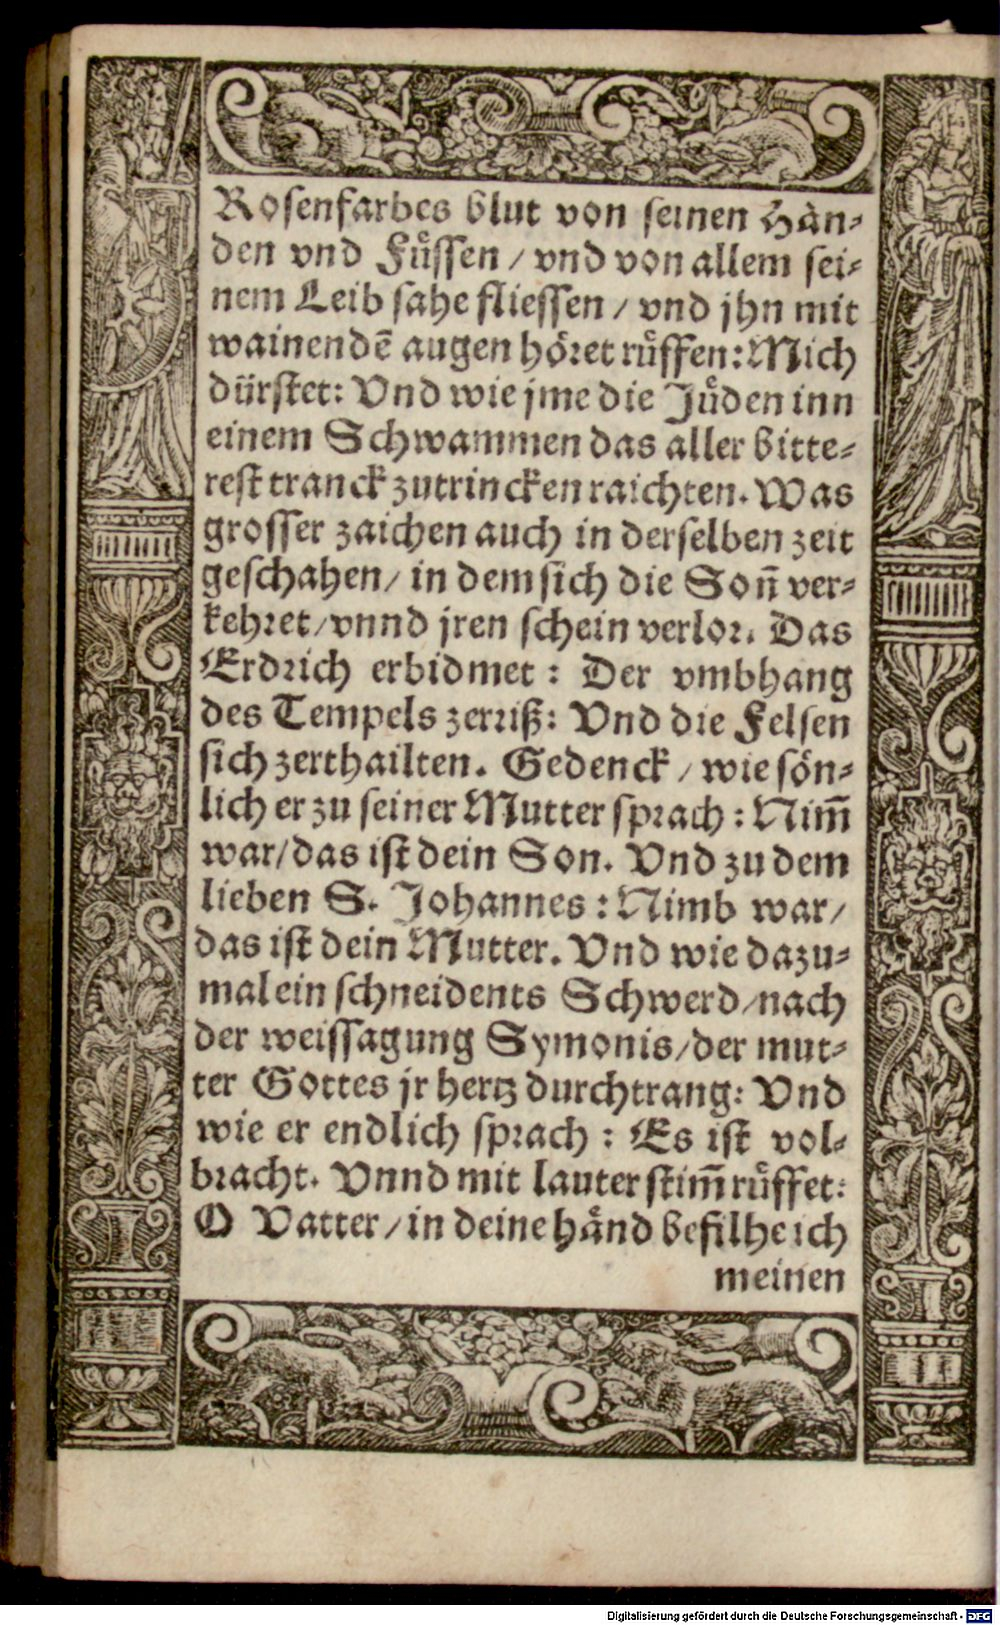 Rosenfarbes blut von seinen Hån⸗
den vnd Fuͤssen / vnd von allem sei⸗
nem Leib sahe fliessen / vnd jhn mit
wainendē augen hoͤret ruͤffen: Mich
dürstet: Vnd wie jme die Juͤden inn
einem Schwammen das aller bitte⸗
rest tranck zutrincken raichten. Was
grosser zaichen auch in derselben zeit
geschahen / in dem sich die Son̄ ver⸗
kehret / vnnd jren schein verlor. Das
Erdrich erbidmet : Der vmbhang
des Tempels zerriß: Vnd die Felsen
sich zerthailten. Gedenck / wie sön⸗
lich er zu seiner Mutter sprach : Nim̄
war / das ist dein Son. Vnd zu dem
lieben S. Johannes : Nimb war /
das ist dein Mutter. Vnd wie dazu⸗
mal ein schneidents Schwerd / nach
der weissagung Symonis / der mut⸗
ter Gottes jr hertz durchtrang: Vnd
wie er endlich sprach : Es ist vol⸗
bracht. Vnnd mit lauter stim̄ ruͤffet:
O Vatter / in deine haͤnd befilhe ich
meinen
Digitalisierung gefördert durch die Deutsche Forschungsgemeinschaft - DFG